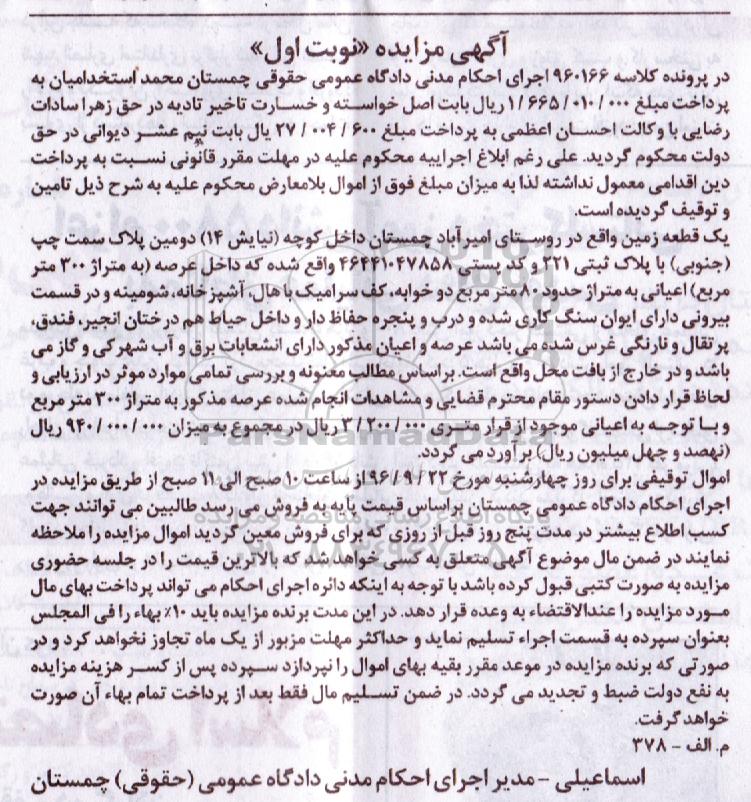 آگهی مزایده «نوبت اول»
در پرونده کلاسه ۹۶۰۱۶۶ اجرای احکام مدنی دادگاه عمومی حقوقی چمستان محمد استخدامیان به
پرداخت مبلغ ۱/۶۶۵/۰۱۰/۰۰۰ ریال بابت اصل خواسته و خسارت تاخیر تادیه در حق زهرا سادات
رضایی با وکالت احسان اعظمی به پرداخت مبلغ ۲۷/۰۰۴/۶۰۰ یال بابت نیم عشر دیوانی در حق
دولت محکوم گردید. علی رغم ابلاغ اجراییه محکوم علیه در مهلت مقرر قانونی نسبت به پرداخت
دین اقدامی معمول نداشته لذا به میزان مبلغ فوق از اموال بلامعارض محکوم علیه به شرح ذیل تامین
و توقیف گردیده است.
یک قطعه زمین واقع در روستای امیرآباد چمستان داخل کوچه (نیایش ۱۴) دومین پلاک سمت چپ
(جنوبی) با پلاک ثبتی ۲۲۱ و کد پستی ۴۶۴۴۱۰۴۷۸۵۸ واقع شده که داخل عرصه (به متراژ ۳۰۰ متر
مربع) اعیانی به متراژ حدود ۸۰ متر مربع دو خوابه، کف سرامیک با هال، آشپزخانه، شومینه و در قسمت
بیرونی دارای ایوان سنگ کاری شده و درب و پنجره حفاظ دار و داخل حیاط هم درختان انجیر، فندق،
پرتقال و نارنگی غرس شده می باشد عرصه و اعیان مذکور دارای انشعابات برق و آب شهرکی و گاز می
باشد و در خارج از بافت محل واقع است. براساس مطالب معنونه و بررسی تمامی موارد موثر در ارزیابی و
لحاظ قرار دادن دستور مقام محترم قضایی و مشاهدات انجام شده عرصه مذکور به متراژ ۳۰۰ متر مربع
و با توجه به اعیانی موجود از قرار متری ۳/۲۰۰/۰۰۰ ریال در مجموع به میزان ۹۴۰/۰۰۰/۰۰۰ ریال
(نهصد و چهل میلیون ریال) برآورد می گردد.
اموال توقیفی برای روز چهارشنبه مورخ ۹۶/۹/۲۲ از ساعت ۱۰ صبح الی ۱۱ صبح از طریق مزایده در
اجرای احکام دادگاه عمومی چمستان براساس قیمت پایه به فروش می رسد طالبین می توانند جهت
کسب اطلاع بیشتر در مدت پنج روز قبل از روزی که برای فروش معین گردید اموال مزایده را ملاحظه
نمایند در ضمن مال موضوع آگهی متعلق به کسی خواهد شد که بالاترین قیمت را در جلسه حضوری
مزایده به صورت کتبی قبول کرده باشد با توجه به اینکه دائره اجرای احکام می تواند پرداخت بهای مال
مورد مزایده را عندالاقتضاء به وعده قرار دهد. در این مدت برنده مزایده باید ۱۰٪ بهاء را فی المجلس
بعنوان سپرده به قسمت اجراء تسلیم نماید و حداکثر مهلت مزبور از یک ماه تجاوز نخواهد کرد و در
صورتی که برنده مزایده در موعد مقرر بقیه بهای اموال را نپردازد سپرده پس از کسر هزینه مزایده
به نفع دولت ضبط و تجدید می گردد. در ضمن تسلیم مال فقط بعد از پرداخت تمام بهاء آن صورت
خواهد گرفت.
م. الف - ۳۷۸
اسماعیلی - مدیر اجرای احکام مدنی دادگاه عمومی (حقوقی) چمستان
ParsNamadData